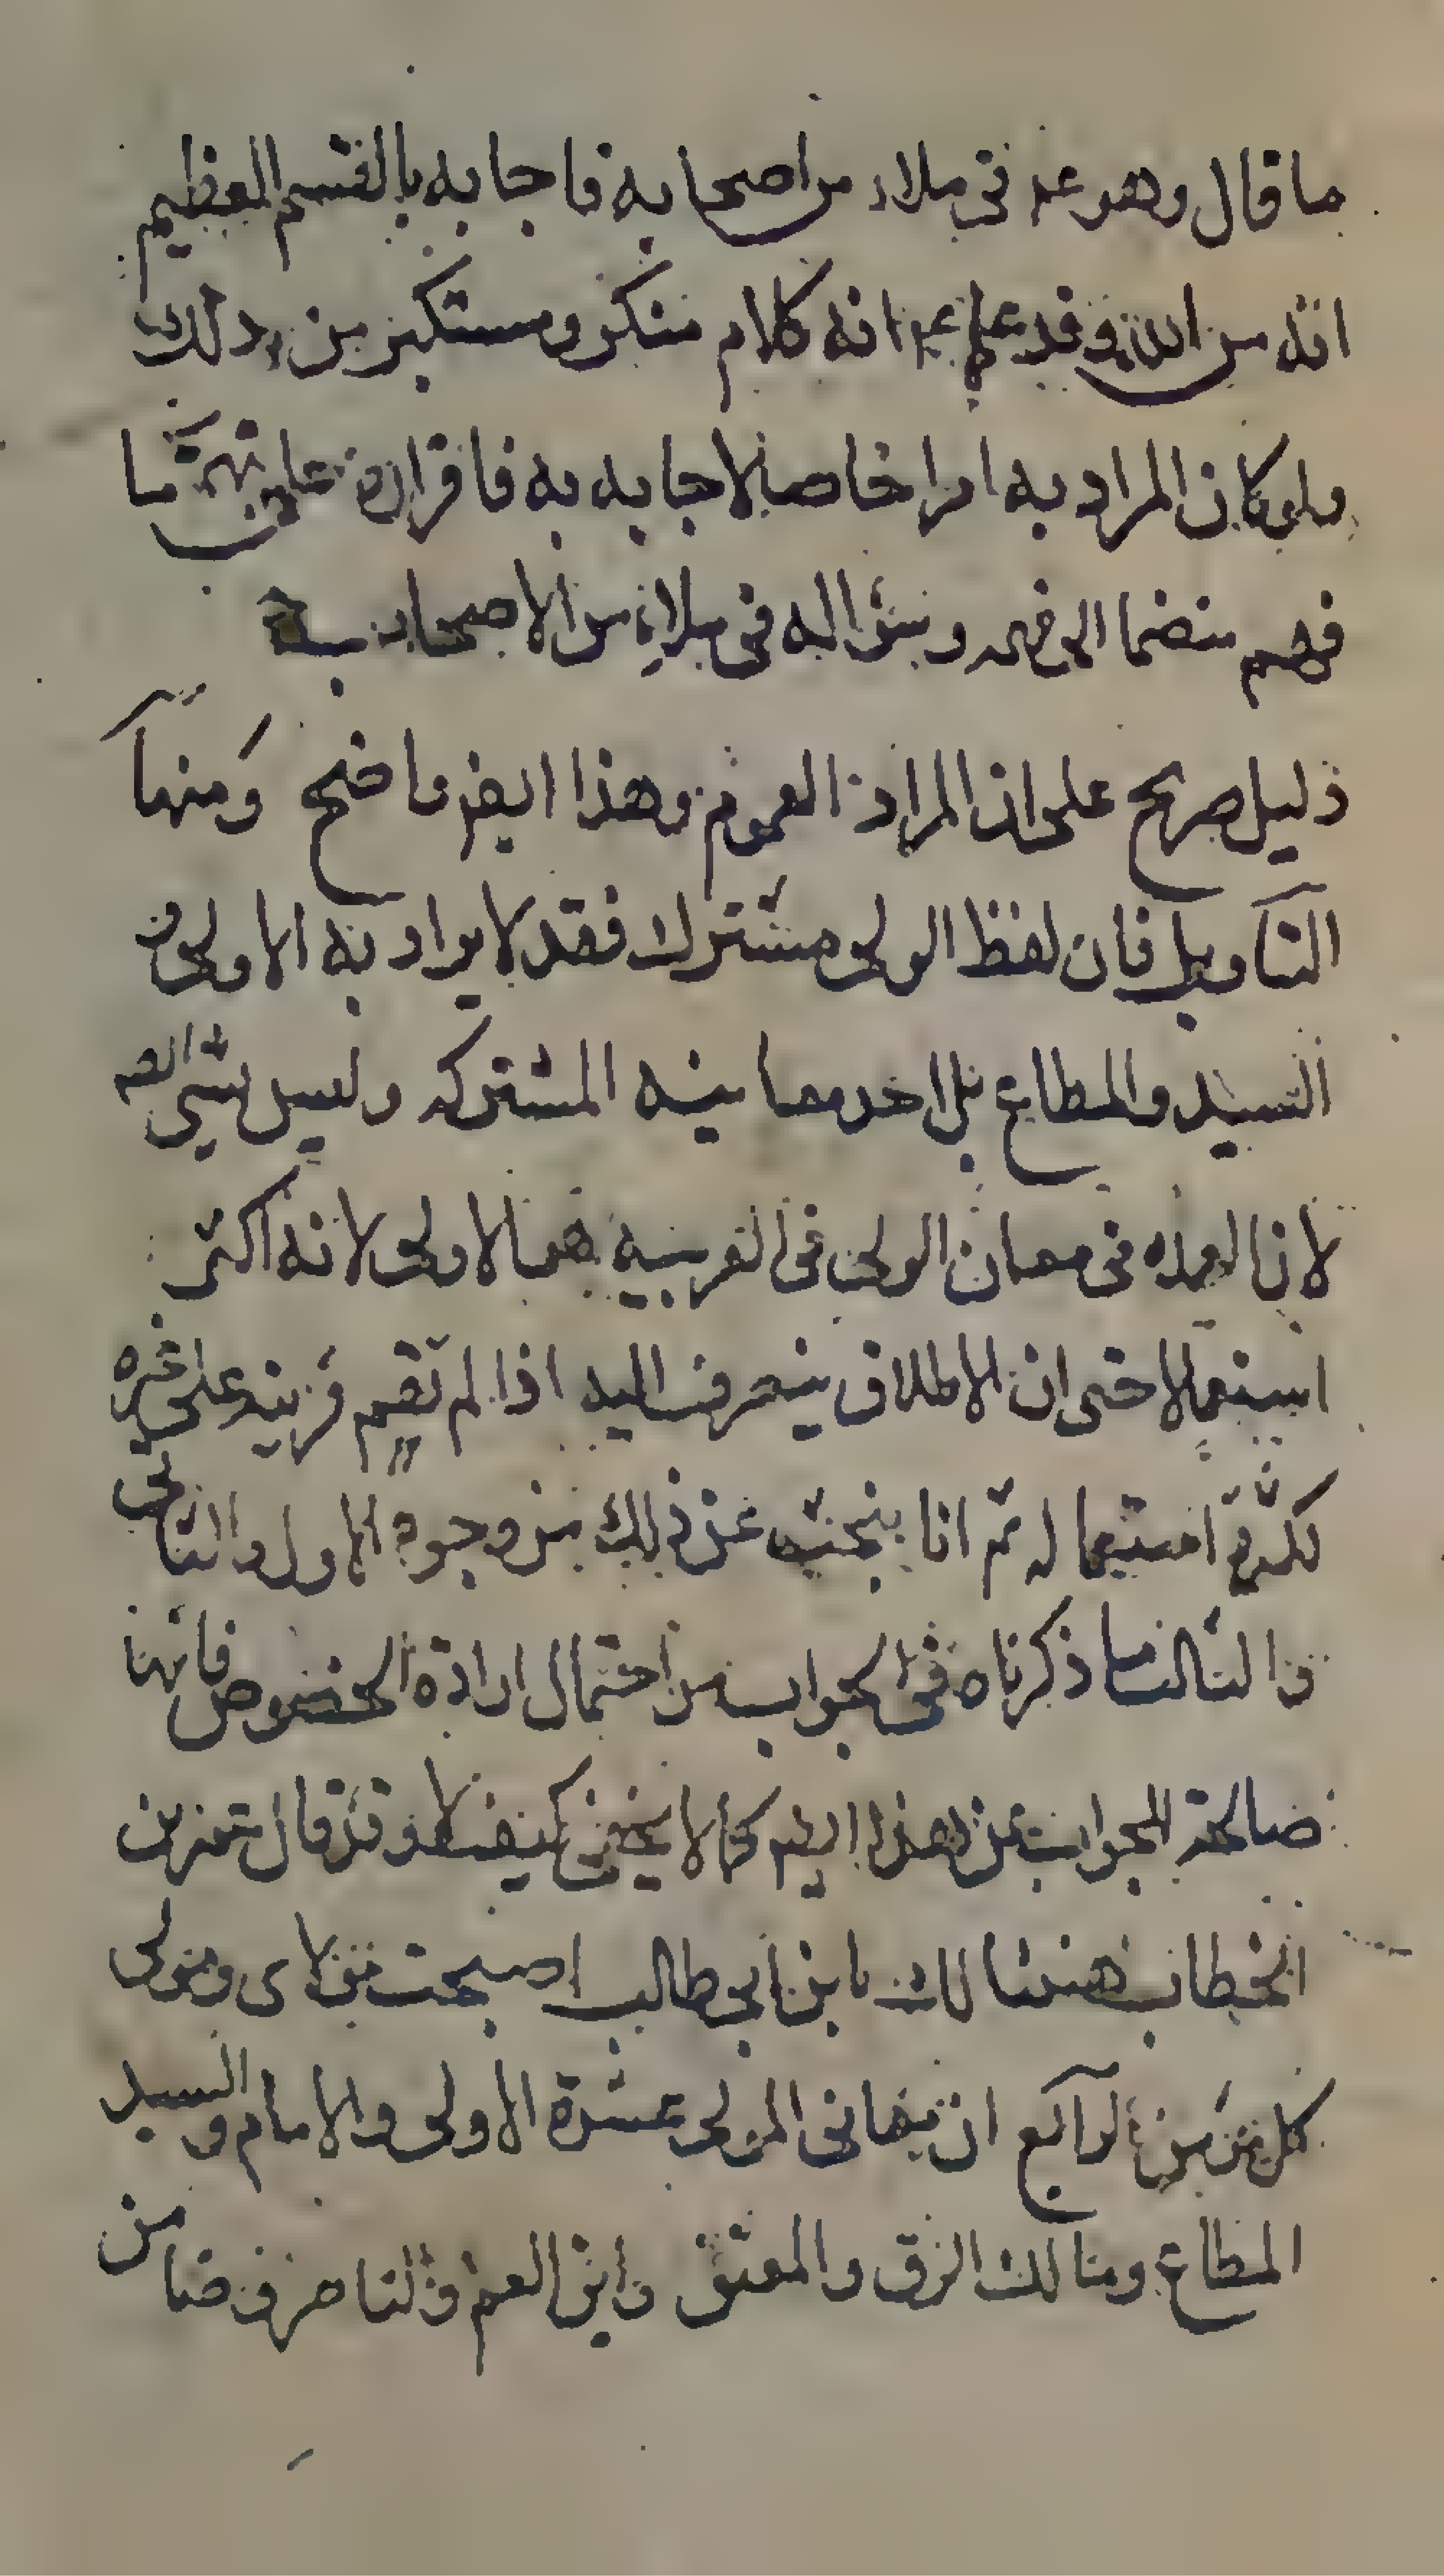 ما قال وهو عم في ملاء من اصحابه فاجابه بالقسم العظيم
انه من الله وقد علم عم انه كلام منكر ومستكبر من ذلك
ولو كان المراد به امرا خاصا لاجابه به فاقراره على ما
فهم منضما الى فهمه وسؤاله في ملاء من الاصحاب
دليل صريح على ان المراد العموم وهذا ايضا واضح ومنها
التأويل فان لفظ الولى مشترك فقد لا يراد به الاولى و
السيد والمطاع بل احد معانيه المشتركه وليس بشي
لان العمده في معان الولى في العربية هو الاولى لانه اكثر
استعمالا حتى ان الاطلاق ينصرف اليه اذا لم تقم قرينه على غيره
لكثرة استعماله ثم انا نبحث عن ذلك من وجوه الاول والثاني
والثالث ما ذكرناه في الجواب من احتمال ارادة الخصوص فانها
صالحة للجواب عن هذا ايضا كما لا يخفى كيف لا وقد قال عمر بن
الخطاب هنيئا لك يا بن ابى طالب اصبحت مولاى ومولى
كل مؤمن الرابع ان معانى المولى عشرة الاولى والامام والسيد
المطاع ومالك الرق والمعتق وابن العم والناصر وضامن